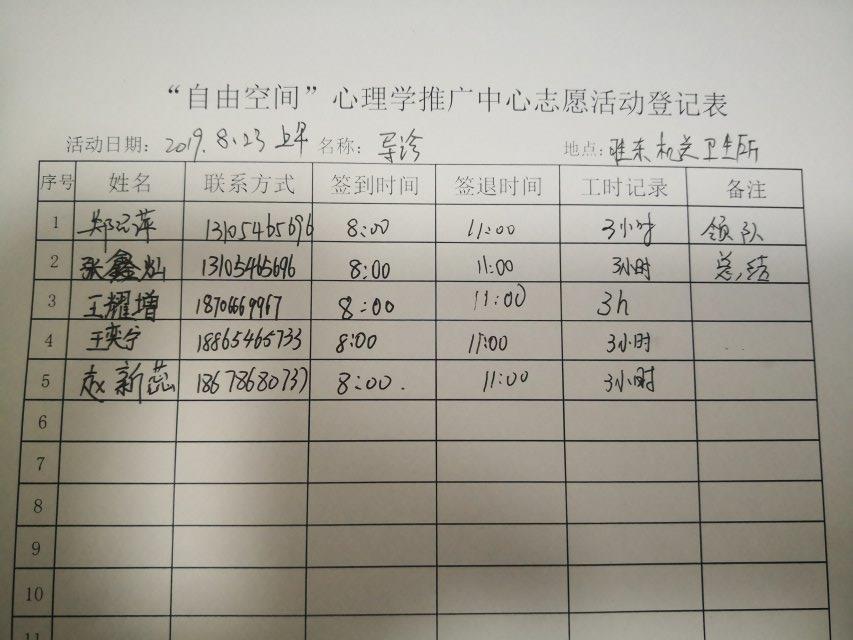 “自由空间”心理学推广中心志愿活动登记表
活动日期：2019.8.23 上午 名称：导诊 地点：胜东机关卫生所
序号 姓名 联系方式 签到时间 签退时间 工时记录 备注
1 郑云萍 13105465696 8:00 11:00 3小时 领队
2 张鑫灿 13105465696 8:00 11:00 3小时 总结
3 王耀增 18706669967 8:00 11:00 3h
4 王奕宁 18865465733 8:00 11:00 3小时
5 赵新蕊 18678680737 8:00. 11:00 3小时
6
7
8
9
10
11